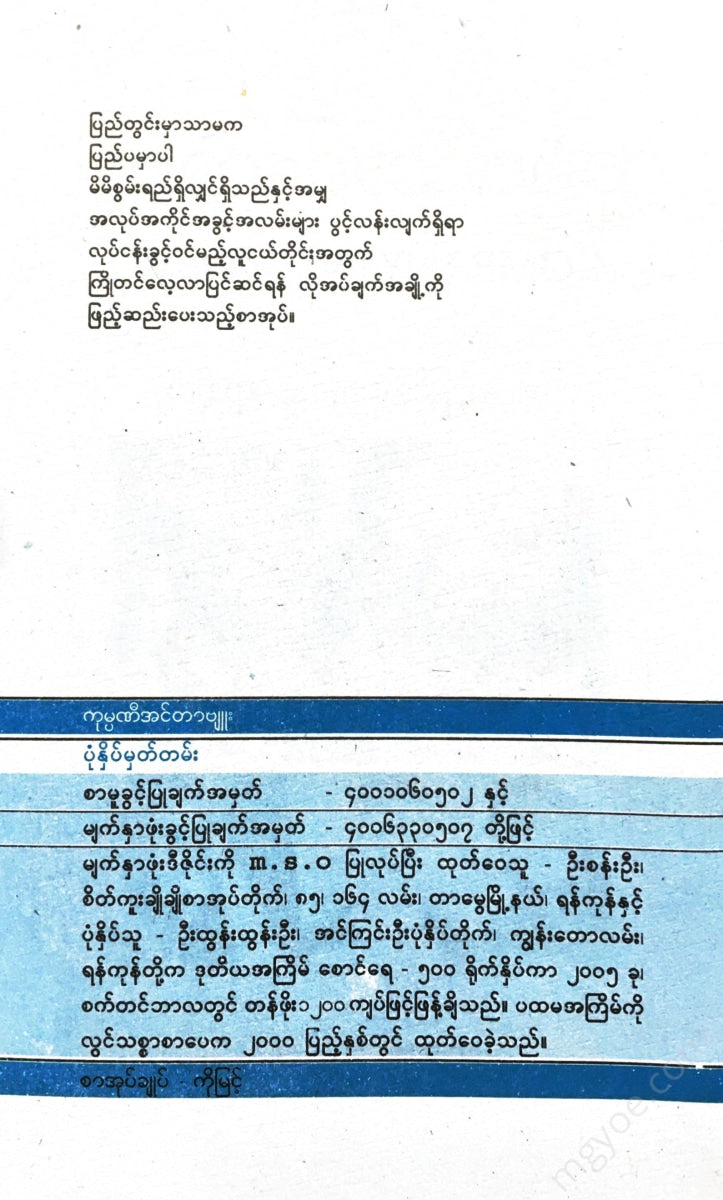 ပြည်တွင်းမှာသာမက
ပြည်ပမှာပါ
မိမိစွမ်းရည်ရှိလျှင်ရှိသည်နှင့်အမျှ
အလုပ်အကိုင်အခွင့်အလမ်းများ ပွင့်လန်းလျက်ရှိရာ
လုပ်ငန်းခွင့်ဝင်မည့်လူငယ်တိုင်းအတွက်
ကြိုတင်လေ့လာပြင်ဆင်ရန် လိုအပ်ချက်အချို့ကို
ဖြည့်ဆည်းပေးသည့်စာအုပ်။
ကုမ္ပဏီအင်တာဗျူး
ပုံနှိပ်မှတ်တမ်း
စာမူခွင့်ပြုချက်အမှတ် - ၄၀၀၁၀၆၀၅၀၂ နှင့်
မျက်နှာဖုံးခွင့်ပြုချက်အမှတ် - ၄၀၀၆၃၃၀၅၀၇ တို့ဖြင့်
မျက်နှာဖုံးဒီဇိုင်းကို m.s.o ပြုလုပ်ပြီး ထုတ်ဝေသူ - ဦးစန်းဦး၊
စိတ်ကူးချိုချိုစာအုပ်တိုက်၊ ၈၅၊ ၁၆၄ လမ်း၊ တာမွေမြို့နယ်၊ ရန်ကုန်နှင့်
ပုံနှိပ်သူ - ဦးထွန်းထွန်းဦး၊ အင်ကြင်းဦးပုံနှိပ်တိုက်၊ ကျွန်းတောလမ်း၊
ရန်ကုန်တို့က ဒုတိယအကြိမ် စောင်ရေ - ၅၀၀ ရိုက်နှိပ်ကာ ၂၀၀၅ ခု၊
စက်တင်ဘာလတွင် တန်ဖိုး၁၂၀၀ကျပ်ဖြင့်ဖြန့်ချိသည်။ ပထမအကြိမ်ကို
လွင်သစ္စာစာပေက ၂၀၀၀ ပြည့်နှစ်တွင် ထုတ်ဝေခဲ့သည်။
စာအုပ်ချုပ် - ကိုမြင့်